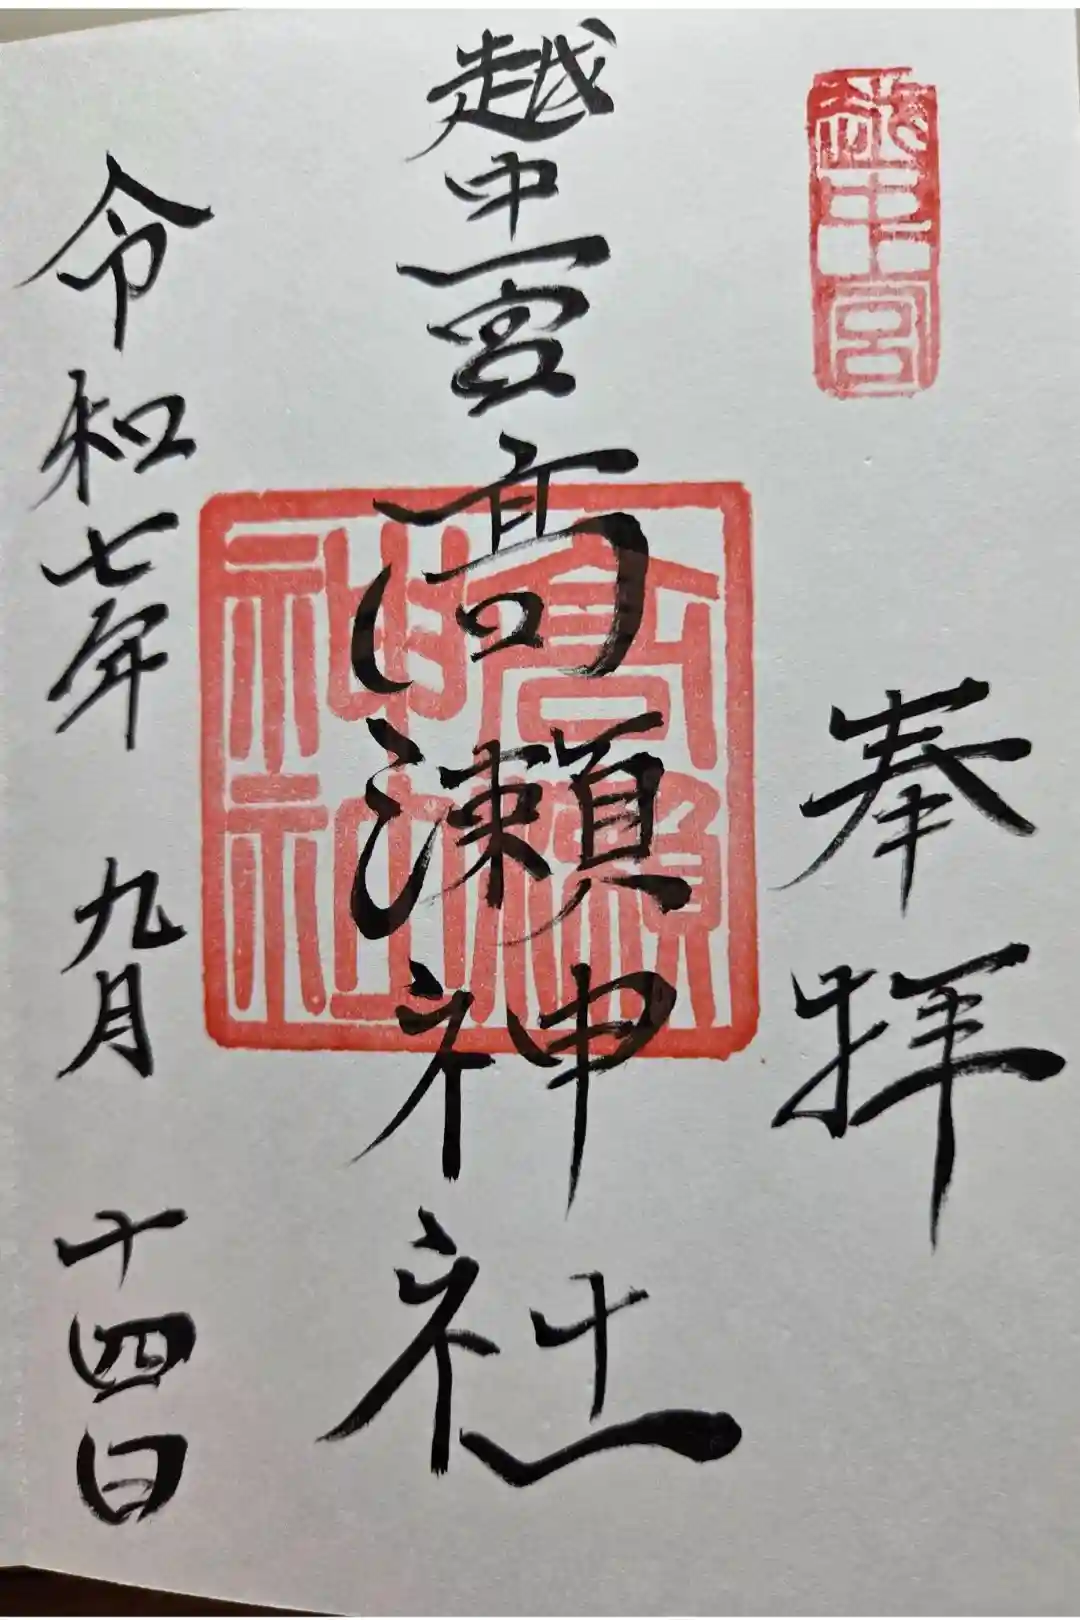 奉拝
越中一宮高瀬神社
高瀬神社
令和七年 九月 十四日